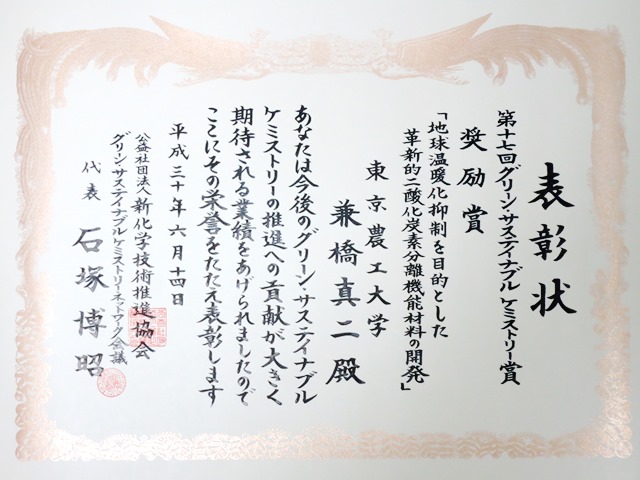 表彰状
第十七回グリーン・サステイナブル ケミストリー賞
奨励賞
「地球温暖化抑制を目的とした
革新的二酸化炭素分離機能材料の開発」
東京農工大学
兼橋真二殿
あなたは今後のグリーン・サステイナブル
ケミストリーの推進への貢献が大きく
期待される業績をあげられましたので
ここにその栄誉をたたえ表彰します
平成三十年六月十四日
公益社団法人新化学技術推進協会
グリーン・サステイナブル ケミストリー ネットワーク会議
代表 石塚博昭